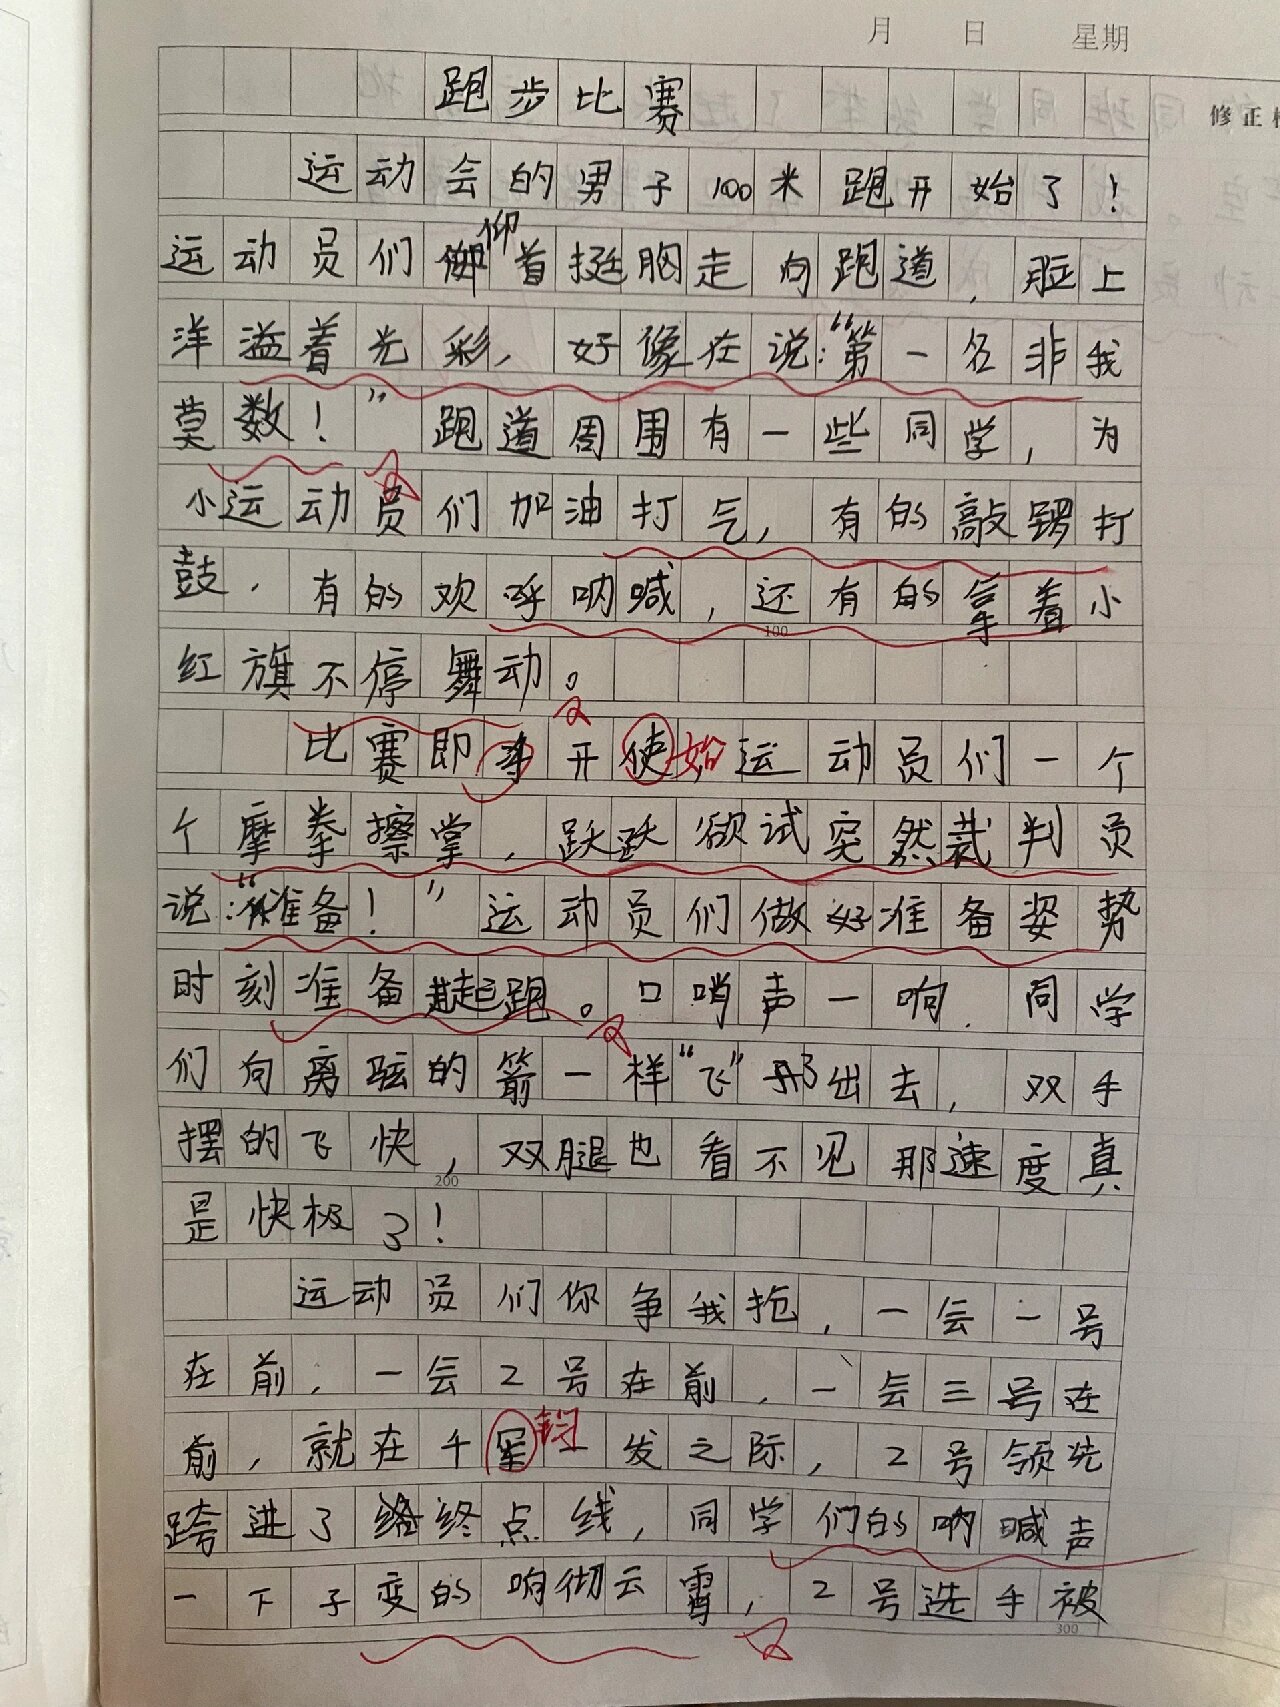 月 日 星期
修正
跑步比赛
运动会的男子100米跑开始了！
仰
运动员们首挺胸走向跑道，脸上
洋溢着光彩，好像在说：“第一名非我
莫数！”跑道周围有一些同学，为
小运动员们加油打气，有的敲锣打
鼓，有的欢呼呐喊，还有的拿着小
100
红旗不停舞动。
比赛即开使始运动员们一个
个摩拳擦掌，跃跃欲试突然裁判员
说：“准备！”运动员们做好准备姿势
时刻准备起跑。口哨声一响，同学
们向离弦的箭一样“飞”那出去，双手
摆的飞快，双腿也看不见那速度真
200
是快极了！
运动员们你争我抢，一会一号
在前，一会2号在前，一会三号在
前，就在千钧一发之际，2号领先
跨进了终点线，同学们的呐喊声
一下子变的响彻云霄，2号选手被
300